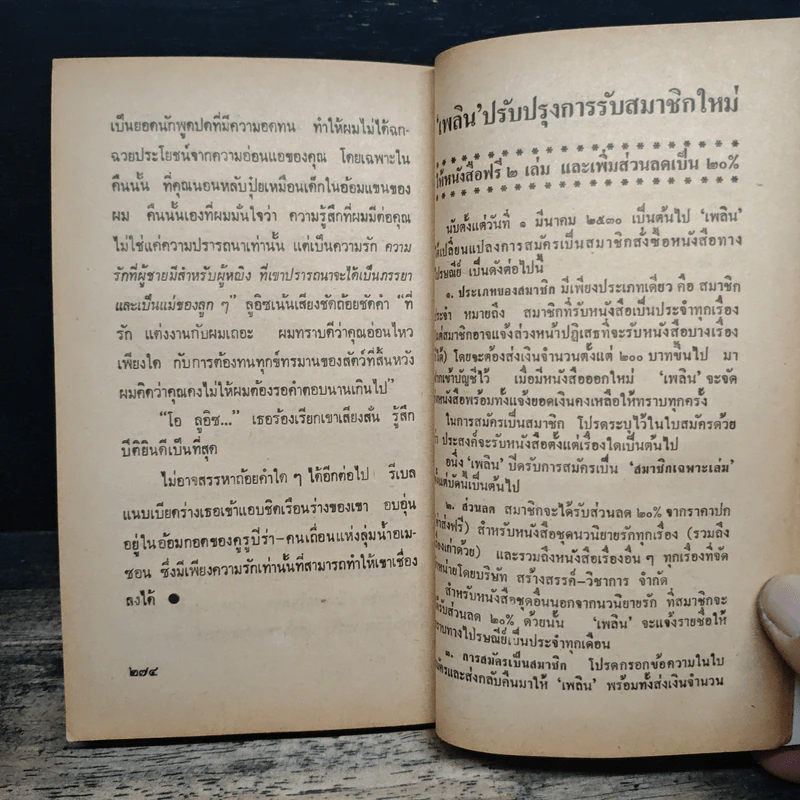 เป็นยอดนักพูดปดที่มีความอดทน ทำให้ผมไม่ได้ฉก-
ฉวยประโยชน์จากความอ่อนแอของคุณ โดยเฉพาะใน
คืนนั้น ที่คุณนอนหลับปุ๋ยเหมือนเด็กในอ้อมแขนของ
ผม คืนนั้นเองที่ผมมั่นใจว่า ความรู้สึกที่ผมมีต่อคุณ
ไม่ใช่แค่ความปรารถนาเท่านั้น แต่เป็นความรัก ความ
รักที่ผู้ชายมีสำหรับผู้หญิง ที่เขาปรารถนาจะได้เป็นภรรยา
และเป็นแม่ของลูก ๆ” ลูอิซเน้นเสียงชัดถ้อยชัดคำ “ที่
รัก แต่งงานกับผมเถอะ ผมทราบดีว่าคุณอ่อนไหว
เพียงใด กับการต้องทนทุกข์ทรมานของสัตว์ที่สิ้นหวัง
ผมคิดว่าคุณคงไม่ให้ผมต้องรอคำตอบนานเกินไป”
“โอ ลูอิซ...” เธอร้องเรียกเขาเสียงสั่น รู้สึก
ปีติยินดีเป็นที่สุด
ไม่อาจสรรหาถ้อยคำใด ๆ ได้อีกต่อไป รีเบล
แนบเบียดร่างเธอเข้าแอบชิดเรือนร่างของเขา อบอุ่น
อยู่ในอ้อมกอดของคูรูบีร่า–คนเถื่อนแห่งลุ่มน้ำอเม-
ซอน ซึ่งมีเพียงความรักเท่านั้นที่สามารถทำให้เขาเชื่อง
ลงได้ ●
๒๗๔
‘เพลิน’ ปรับปรุงการรับสมาชิกใหม่
ให้หนังสือฟรี ๒ เล่ม และเพิ่มส่วนลดเป็น ๒๐%
นับตั้งแต่วันที่ ๑ มีนาคม ๒๕๓๐ เป็นต้นไป ‘เพลิน’
ได้เปลี่ยนแปลงการสมัครเป็นสมาชิกสั่งซื้อหนังสือทาง
ไปรษณีย์ เป็นดังต่อไปนี้
๑. ประเภทของสมาชิก มีเพียงประเภทเดียว คือ สมาชิก
ประจำ หมายถึง สมาชิกที่รับหนังสือเป็นประจำทุกเรื่อง
แต่สมาชิกอาจแจ้งล่วงหน้าปฏิเสธที่จะรับหนังสือบางเรื่อง
ได้) โดยจะต้องส่งเงินจำนวนตั้งแต่ ๒๐๐ บาทขึ้นไป มา
ฝากเข้าบัญชีไว้ เมื่อมีหนังสือออกใหม่ ‘เพลิน’ จะจัด
หนังสือพร้อมทั้งแจ้งยอดเงินคงเหลือให้ทราบทุกครั้ง
ในการสมัครเป็นสมาชิก โปรดระบุไว้ในใบสมัครด้วย
ประสงค์จะรับหนังสือตั้งแต่เรื่องใดเป็นต้นไป
อนึ่ง ‘เพลิน’ ปิดรับการสมัครเป็น ‘สมาชิกเฉพาะเล่ม’
ตั้งแต่บัดนี้เป็นต้นไป
๒. ส่วนลด สมาชิกจะได้รับส่วนลด ๒๐% จากราคาปก
(ค่าส่งฟรี) สำหรับหนังสือชุดนวนิยายรักทุกเรื่อง (รวมถึง
เรื่องเก่าด้วย) และรวมถึงหนังสือเรื่องอื่น ๆ ทุกเรื่องที่จัด
จำหน่ายโดยบริษัท สร้างสรรค์–วิชาการ จำกัด
สำหรับหนังสือชุดอื่นนอกจากนวนิยายรัก ที่สมาชิกจะ
ได้รับส่วนลด ๒๐% ด้วยนั้น ‘เพลิน’ จะแจ้งรายชื่อให้
ทราบทางไปรษณีย์เป็นประจำทุกเดือน
๓. การสมัครเป็นสมาชิก โปรดกรอกข้อความในใบ
สมัครและส่งกลับคืนมาให้ ‘เพลิน’ พร้อมทั้งส่งเงินจำนวน